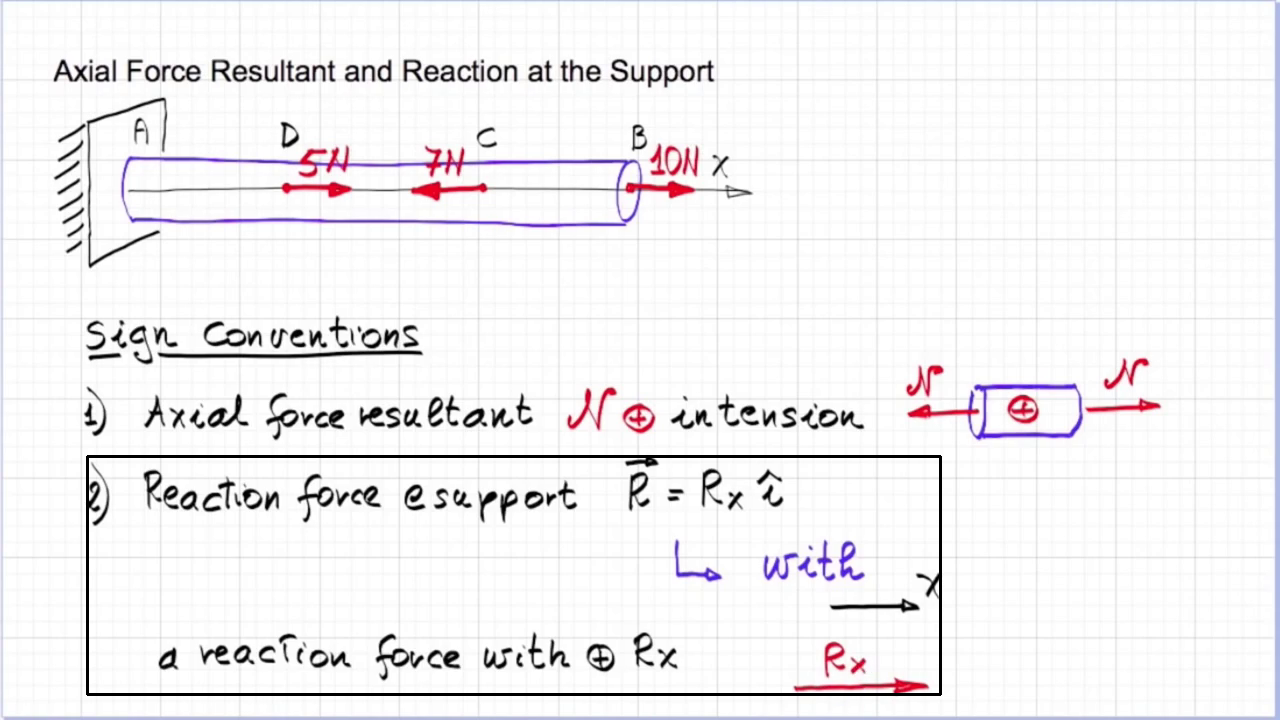 Axial Force Resultant and Reaction at the Support
A D C B
5N 7N 10N x
Sign Conventions
1) Axial force resultant N ⊕ in tension N ⊕ N
2) Reaction force @ support R⃗ = Rx î
↳ with
x
a reaction force with ⊕ Rx Rx